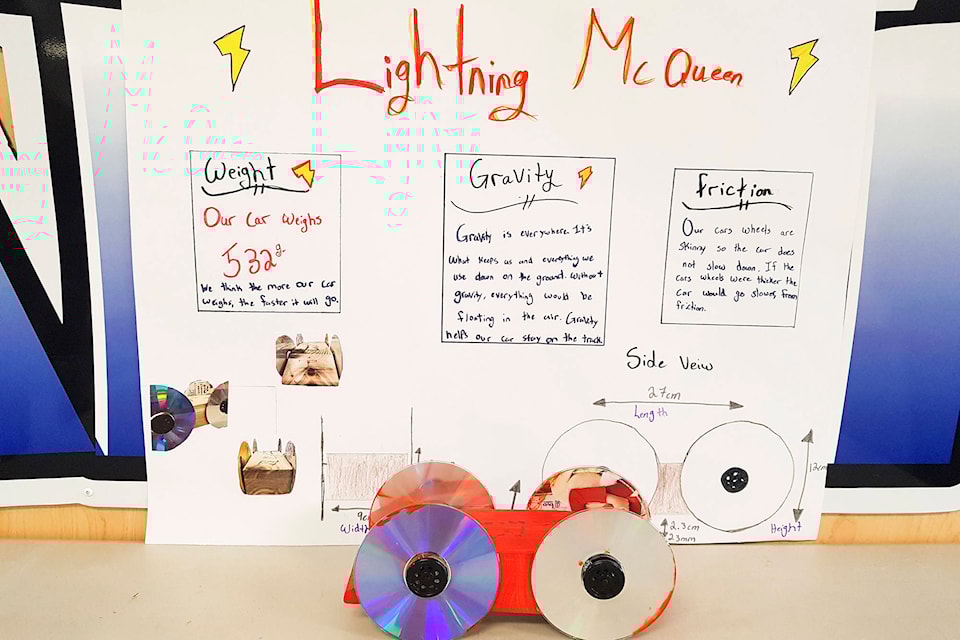 Lightning McQueen
Weight
Our Car Weighs
532g
We think the more our car
weighs, the faster it will go.
Gravity
Gravity is everywhere. It's
what keeps us and everything we
use down on the ground. Without
gravity, everything would be
floating in the air. Gravity
helps our car stay on the track
friction
Our cars wheels are
skinny so the car does
not slow down. If the
cars wheels were thicker the
car would go slower from
friction.
Side Veiw
27cm
Length
12cm
Width
2.3cm
23mm
Height